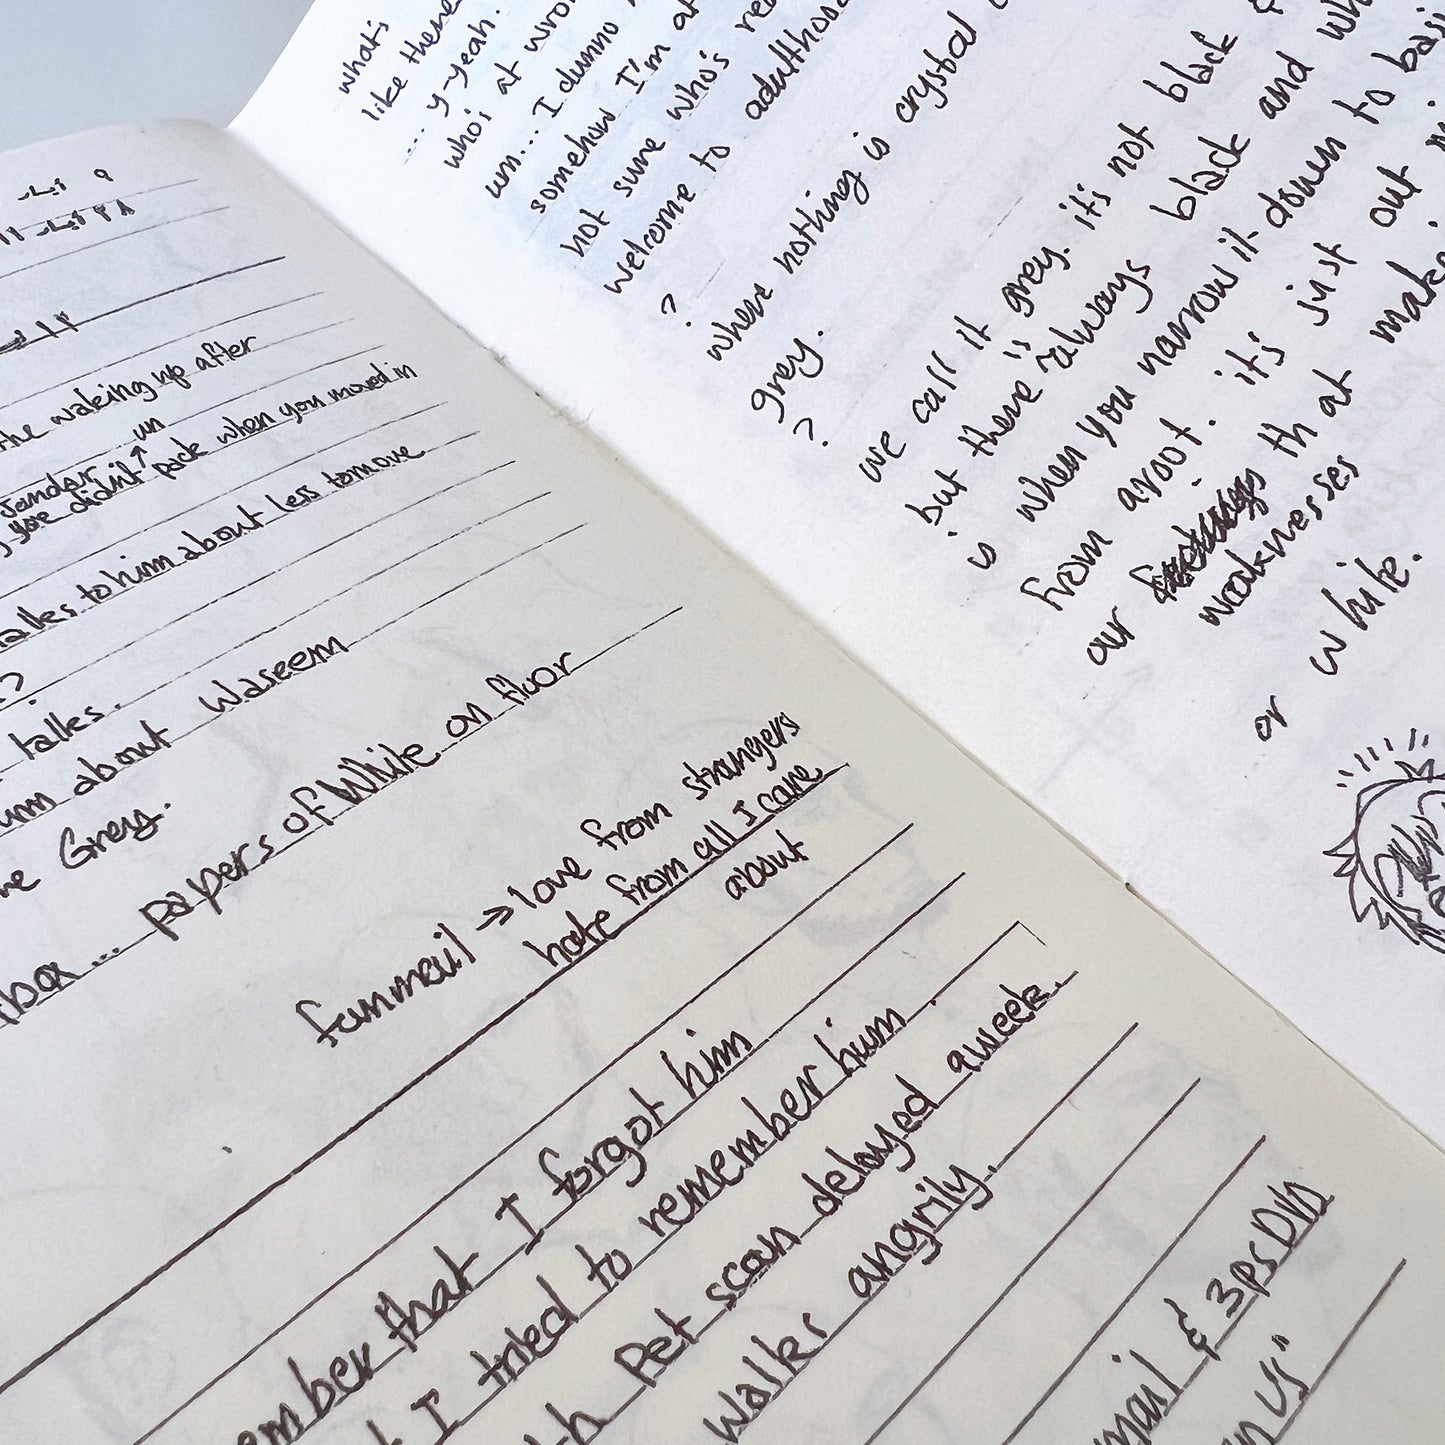 ٩ أيار
٢٨ أيار
the waking up after
un
you didn't ↑ pack when you moved in
talks to him about less to move
?
talks.
um about Waseem
me Grey.
box... papers of White on floor
fanmail → love from strangers
hate from all I care
about
ember that I forgot him
I tried to remember him.
Pet scan delayed a week.
walks angrily.
mail & 3psDVD
on us"
what's
like theme
... y-yeah.
who's at wrong
um... I dunno
somehow I'm at
not sure who's
welcome to adulthood
?
where nothing is crystal
grey.
?
we call it grey. it's not black &
but there is always black and wh
is when you narrow it down to basi
from a root. it's just out
our th at make
weaknesses
or white.